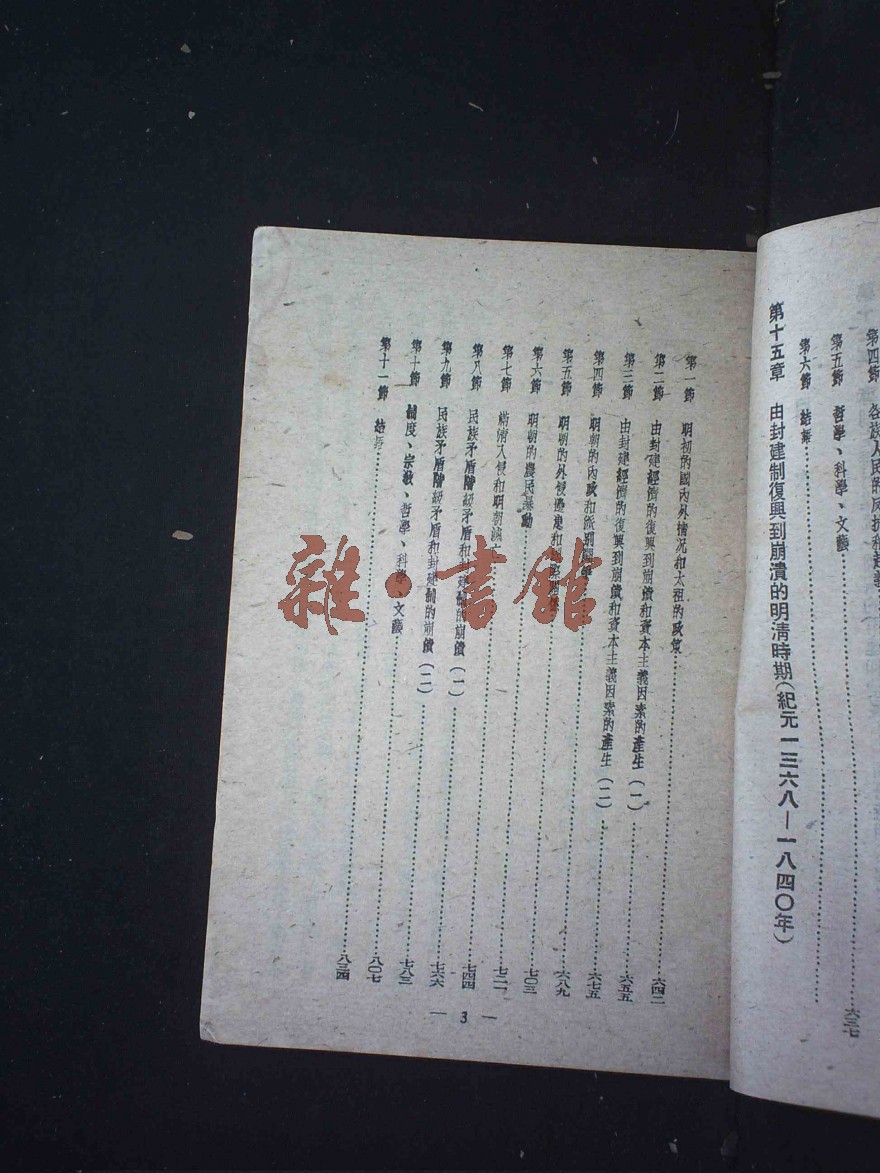 第四節 各族人民的反抗和起義
第五節 哲學、科學、文藝 六三七
第六節 結語
第十五章 由封建制復興到崩潰的明清時期(紀元一三六八—一八四〇年)
第一節 明初的國內外情況和太祖的政策 六四二
第二節 由封建經濟的復興到崩潰和資本主義因素的產生(一) 六五五
第三節 由封建經濟的復興到崩潰和資本主義因素的產生(二) 六七五
第四節 明朝的內政和派別鬥爭 六八九
第五節 明朝的外侵邊患和 七〇三
第六節 明朝的農民暴動 七二一
第七節 滿清入侵和明朝滅亡 七四四
第八節 民族矛盾階級矛盾和封建制的崩潰(一) 七六六
第九節 民族矛盾階級矛盾和封建制的崩潰(二) 七八三
第十節 制度、宗教、哲學、科學、文藝 八〇七
第十一節 結語 八三四
— 3 —
雜·書館